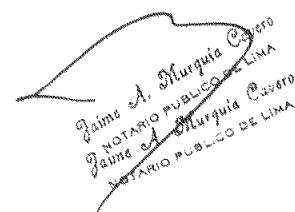 Jaime A. Murguia Cavero
NOTARIO PUBLICO DE LIMA
Jaime A. Murguia Cavero
NOTARIO PUBLICO DE LIMA